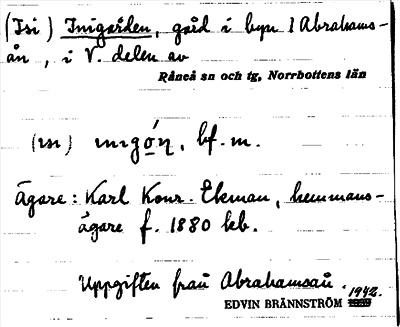 (Isi) Inigården, gård i byn 1 Abrahams-
ån, i V. delen av
Råneå sn och tg, Norrbottens län
bf. m.
Ägare: Karl Konr. Ekman, hemmans-
ägare f. 1880 leb.
Uppgiften från Abrahamsån.
EDVIN BRÄNNSTRÖM 1942.